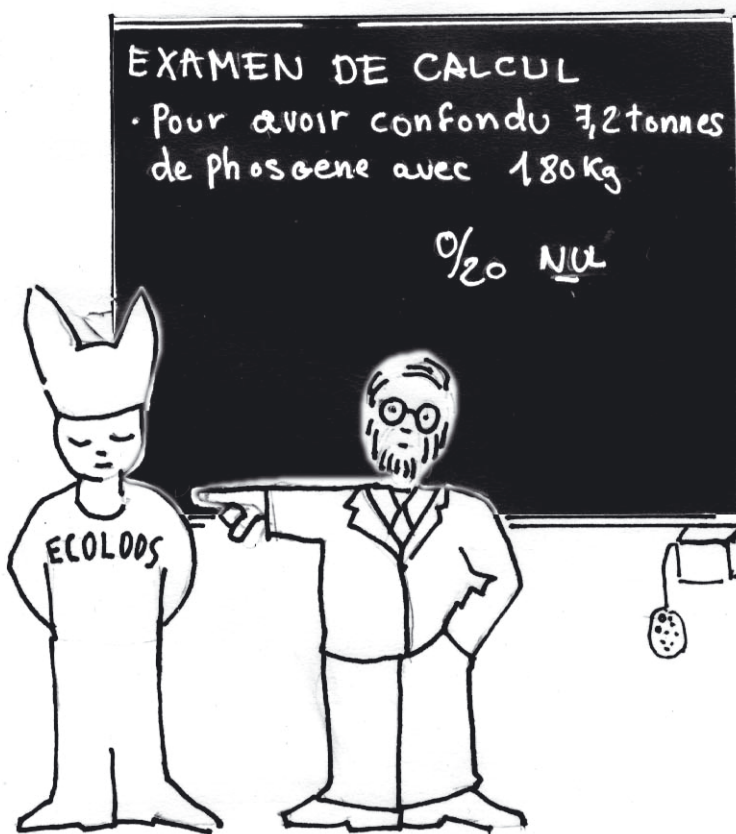 EXAMEN DE CALCUL
• Pour avoir confondu 7,2 tonnes
de phosgene avec 180 Kg
0/20 NUL
ECOLODS